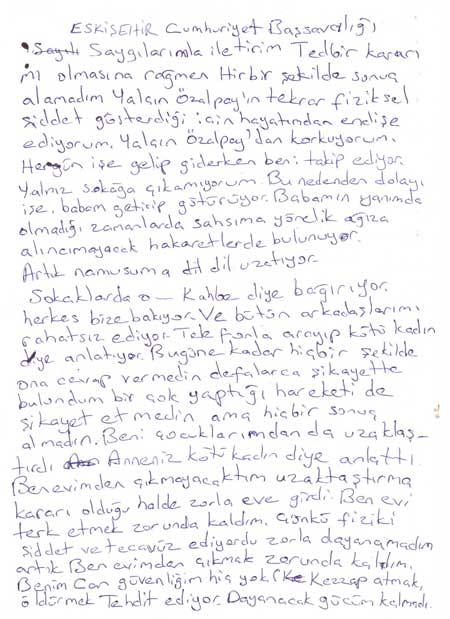 ESKİSEHİR Cumhuriyet Bassavcılığı
Saygılarımla iletirim Tedbir kararı
mı olmasına rağmen Hirbir şekilde sonuç
alamadım Yalçın Özalpay'ın tekrar fiziksel
şiddet gösterdiği için hayatından endişe
ediyorum. Yalçın Özalpay'dan korkuyorum.
Hergün işe gelip giderken beni takip ediyor.
Yalnız sokağa çıkamıyorum. Bu nedenden dolayı
işe, babam getirip götürüyor. Babamın yanımda
olmadığı zamanlarda şahsıma yönelik ağıza
alıncımayacak hakaretlerde bulunuyor.
Artık namusuma dil dil uzatıyor.
Sokaklarda o — Kahbe diye bağırıyor.
herkes bize bakıyor. Ve bütün arkadaşlarımı
rahatsız ediyor. Telefonla arayıp kötü kadın
diye anlatıyor. Bugüne kadar hiçbir şekilde
ona cevap vermedin defalarca şikayette
bulundum bir çok yaptığı hareketi de
şikayet etmedin ama hiçbir sonuç
almadın. Beni çocuklarımdan da uzaklaş-
tırdı Anneniz kötü kadın diye anlattı.
Ben evimden çıkmayacaktım uzaktaştırma
kararı olduğu halde zorla eve girdi. Ben evi
terk etmek zorunda kaldım. Çünkü fiziki
şiddet ve tecavüz ediyordu zorla dayanamadım
artık Ben evimden çıkmak zorunda kaldım.
Benim Can güvenliğim hiç yok. Kezzap atmak,
öldürmek Tehdit ediyor. Dayanacak gücüm kalmadı.